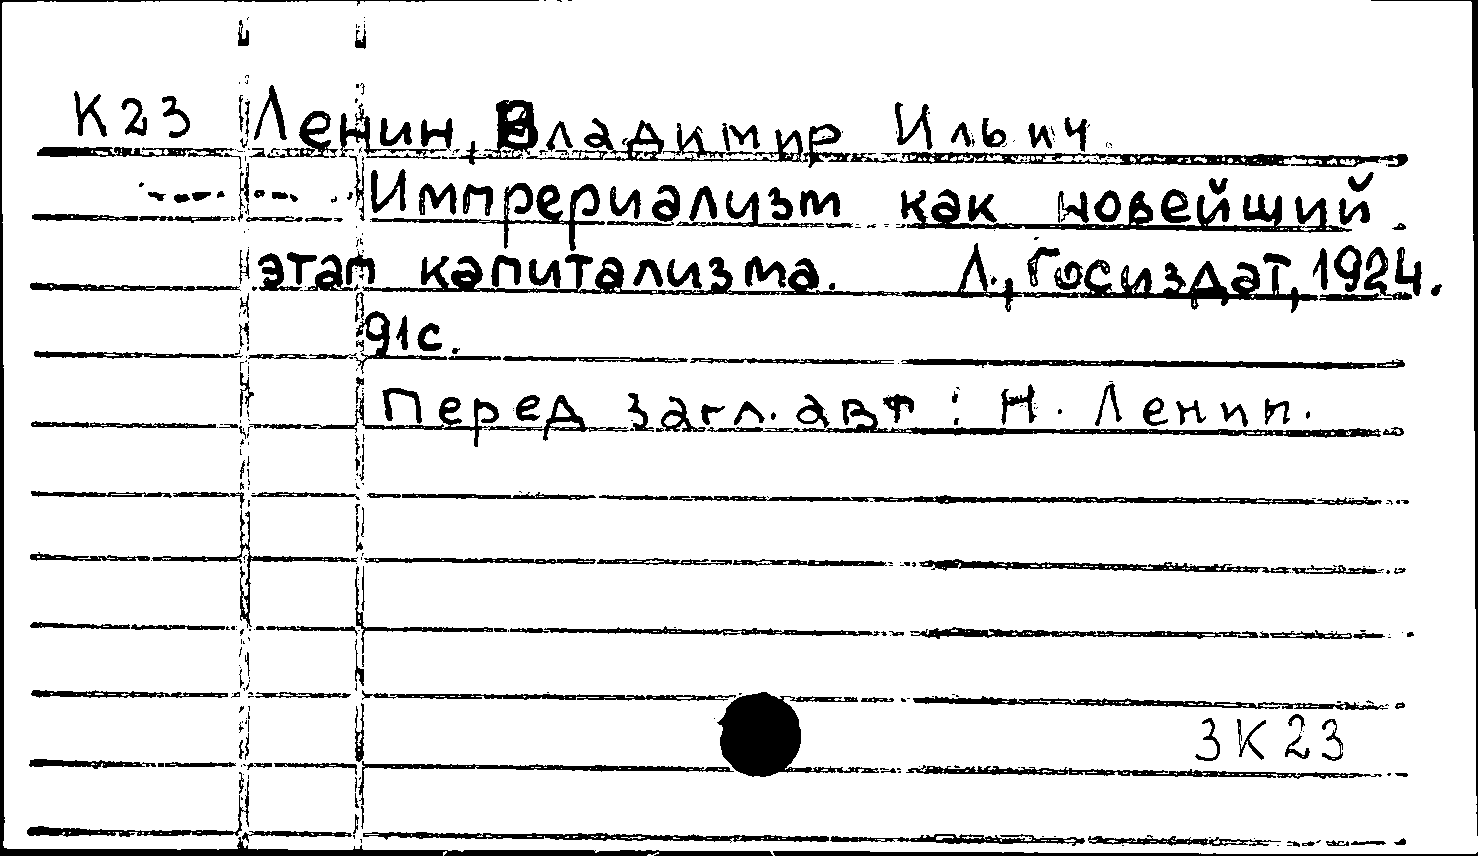 К23 Ленин, Владимир Ильич
Импрериализм как новейший
этап капитализма. Л., Госиздат, 1924.
91с.
Перед загл. авт: Н. Ленин.
3К23